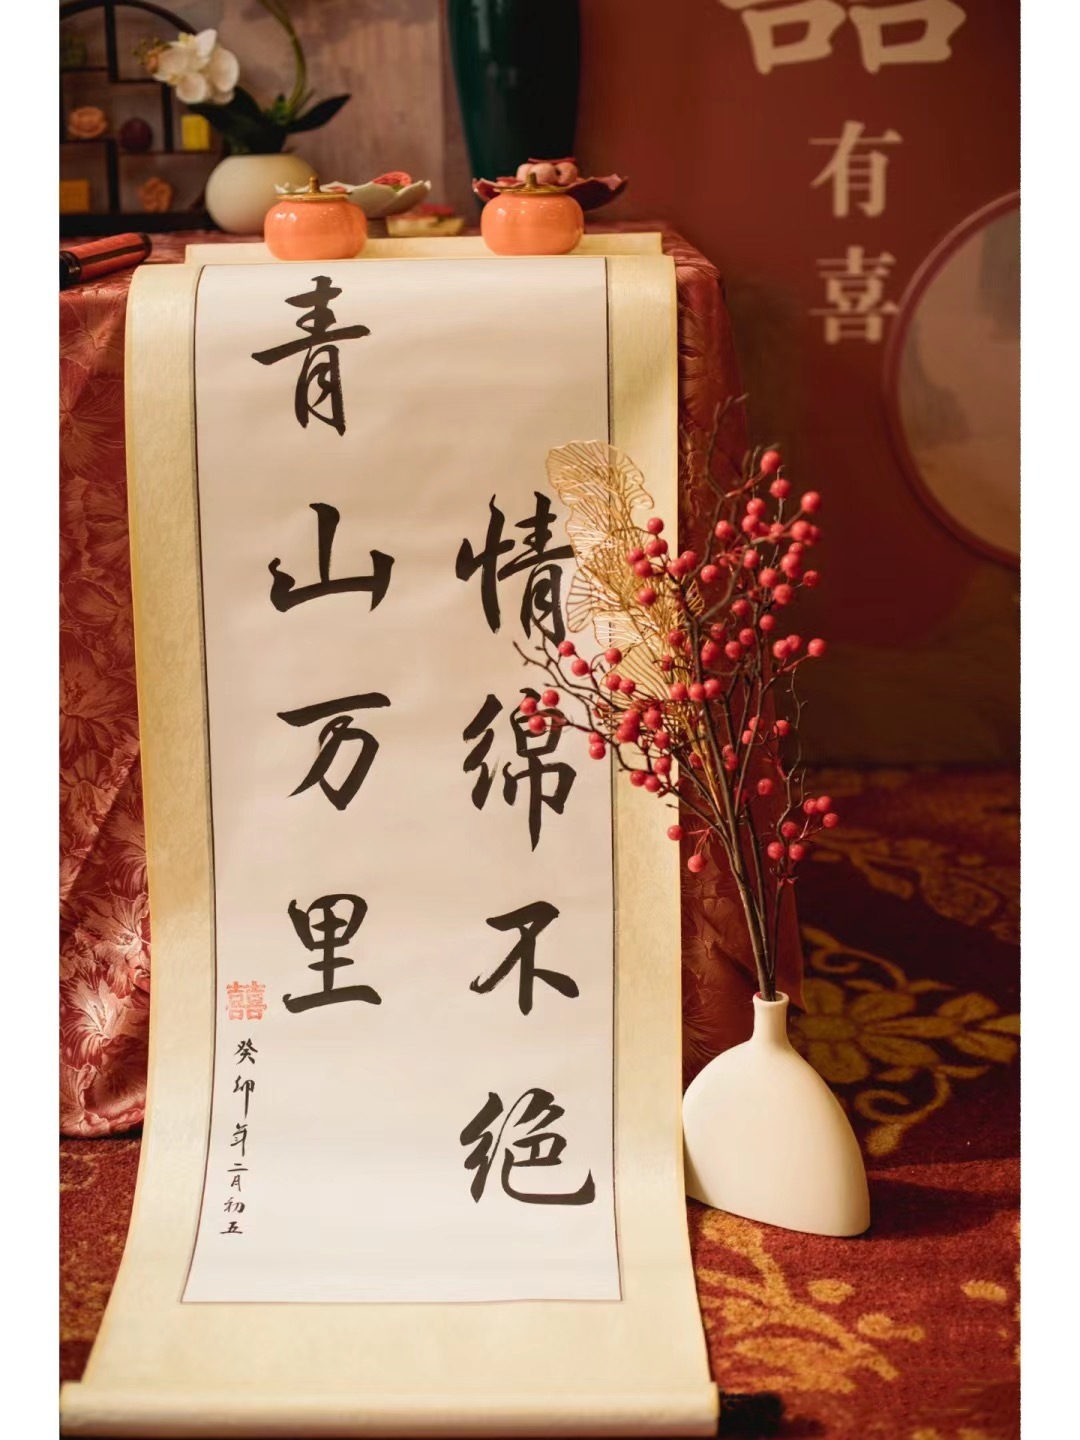 情绵不绝
青山万里
囍
癸卯年二月初五
囍
有喜